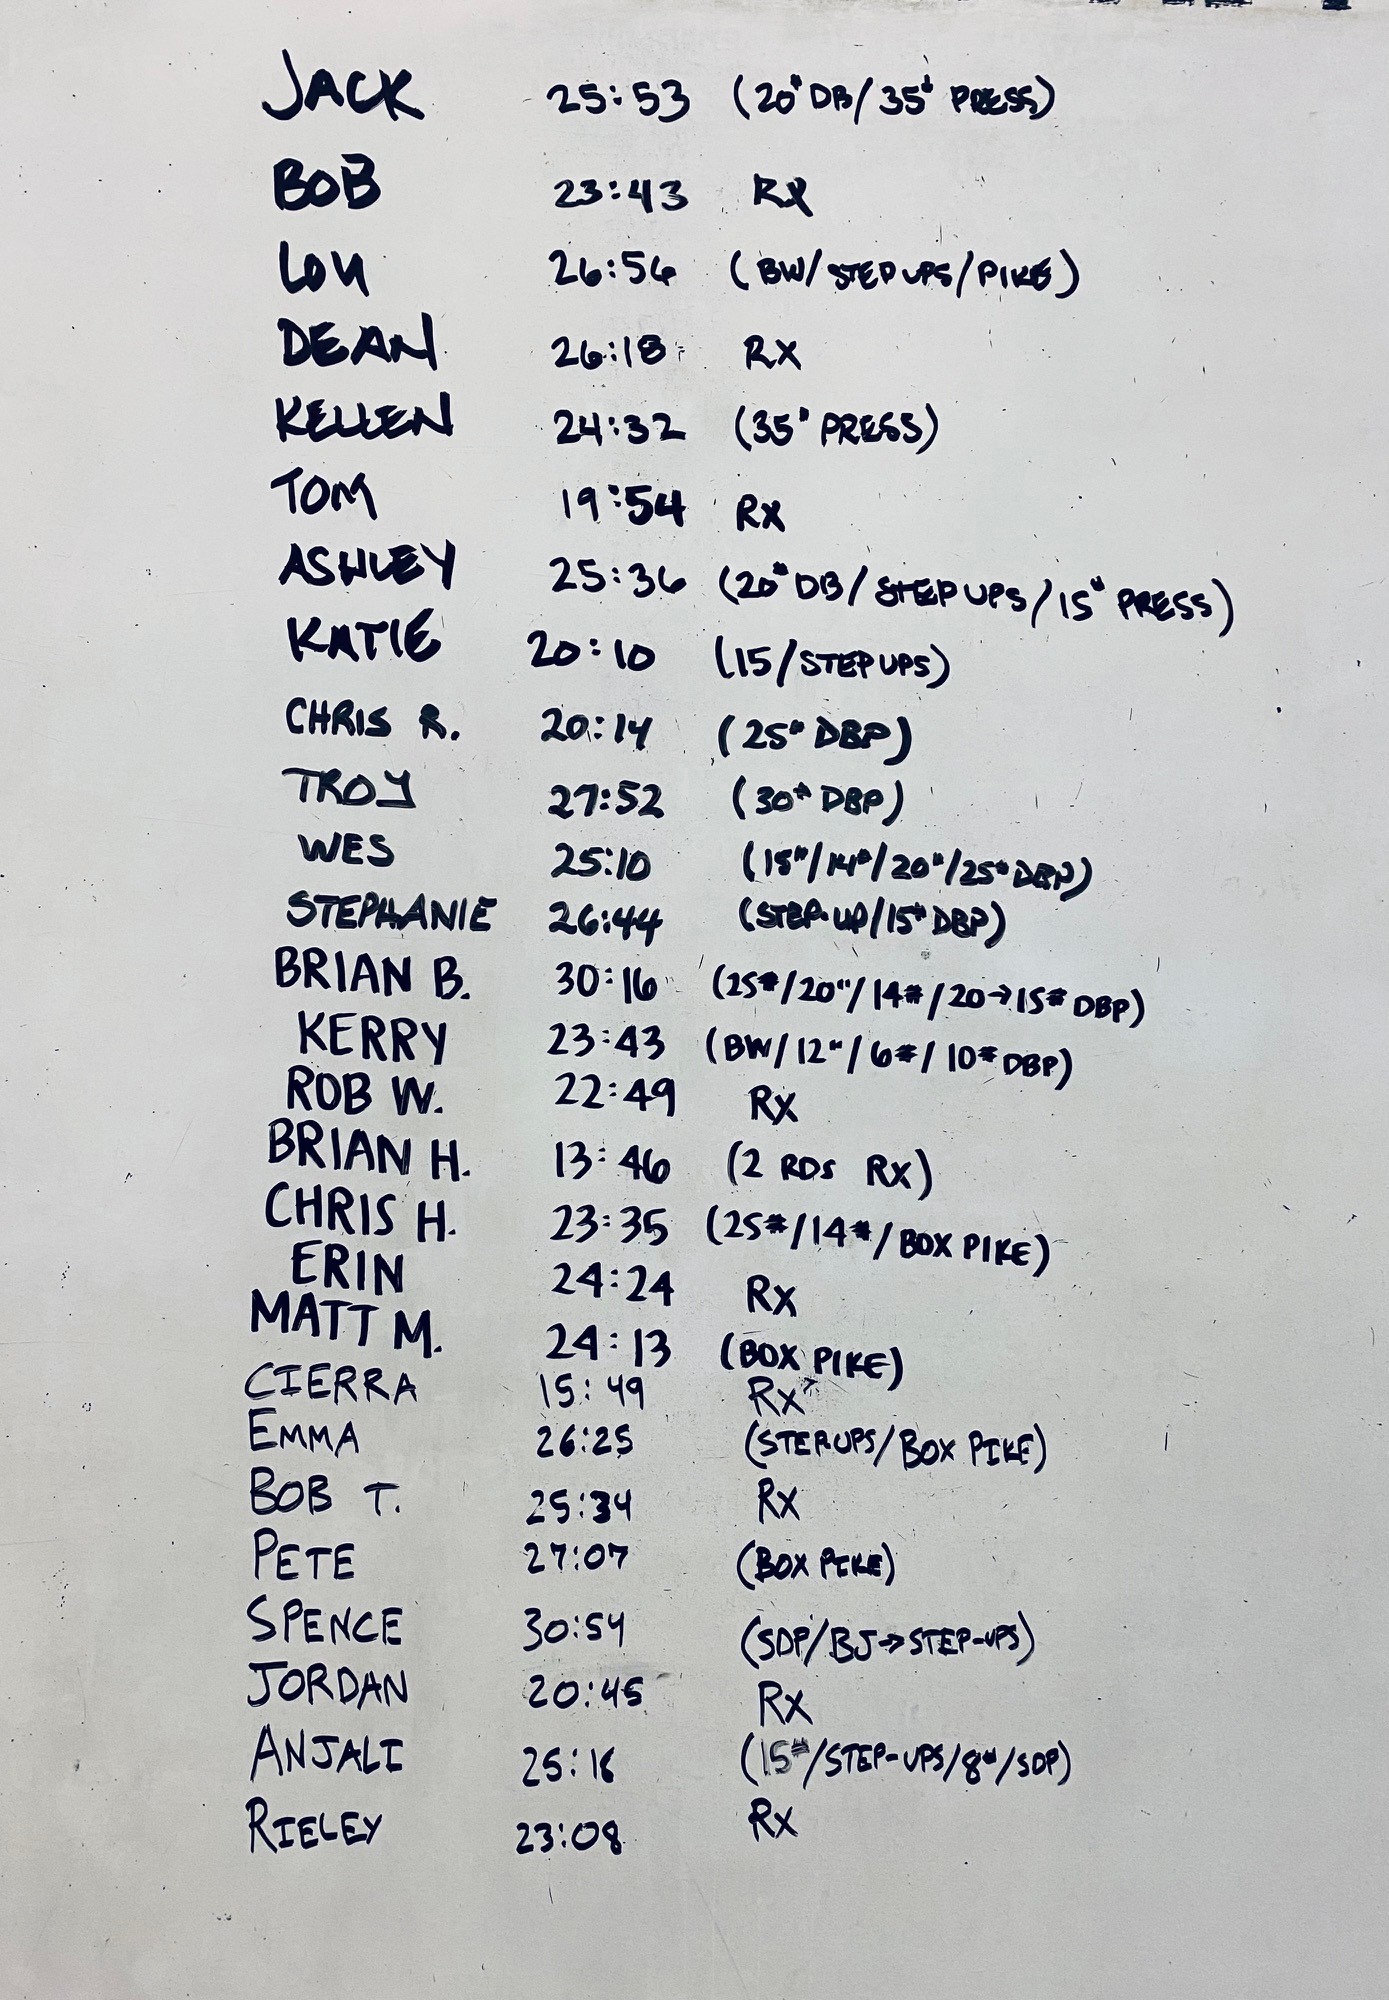 JACK 25:53 (20# DB/35# PRESS)
BOB 23:43 RX
LOU 26:56 (BW/STEP UPS/PIKE)
DEAN 26:18 RX
KELLEN 24:32 (35# PRESS)
TOM 19:54 RX
ASHLEY 25:36 (20# DB/STEP UPS/15# PRESS)
KATIE 20:10 (15/STEP UPS)
CHRIS R. 20:14 (25# DBP)
TROY 27:52 (30# DBP)
WES 25:10 (15#/14#/20"/25# DBP)
STEPHANIE 26:44 (STEP-UP/15# DBP)
BRIAN B. 30:16 (25#/20"/14#/20→15# DBP)
KERRY 23:43 (BW/12"/6#/10# DBP)
ROB W. 22:49 RX
BRIAN H. 13:46 (2 RDS RX)
CHRIS H. 23:35 (25#/14#/BOX PIKE)
ERIN 24:24 RX
MATT M. 24:13 (BOX PIKE)
CIERRA 15:49 RX
EMMA 26:25 (STEPUPS/BOX PIKE)
BOB T. 25:34 RX
PETE 27:07 (BOX PIKE)
SPENCE 30:54 (SDP/BJ→STEP-UPS)
JORDAN 20:45 RX
ANJALI 25:16 (15#/STEP-UPS/8#/SDP)
RIELEY 23:08 RX